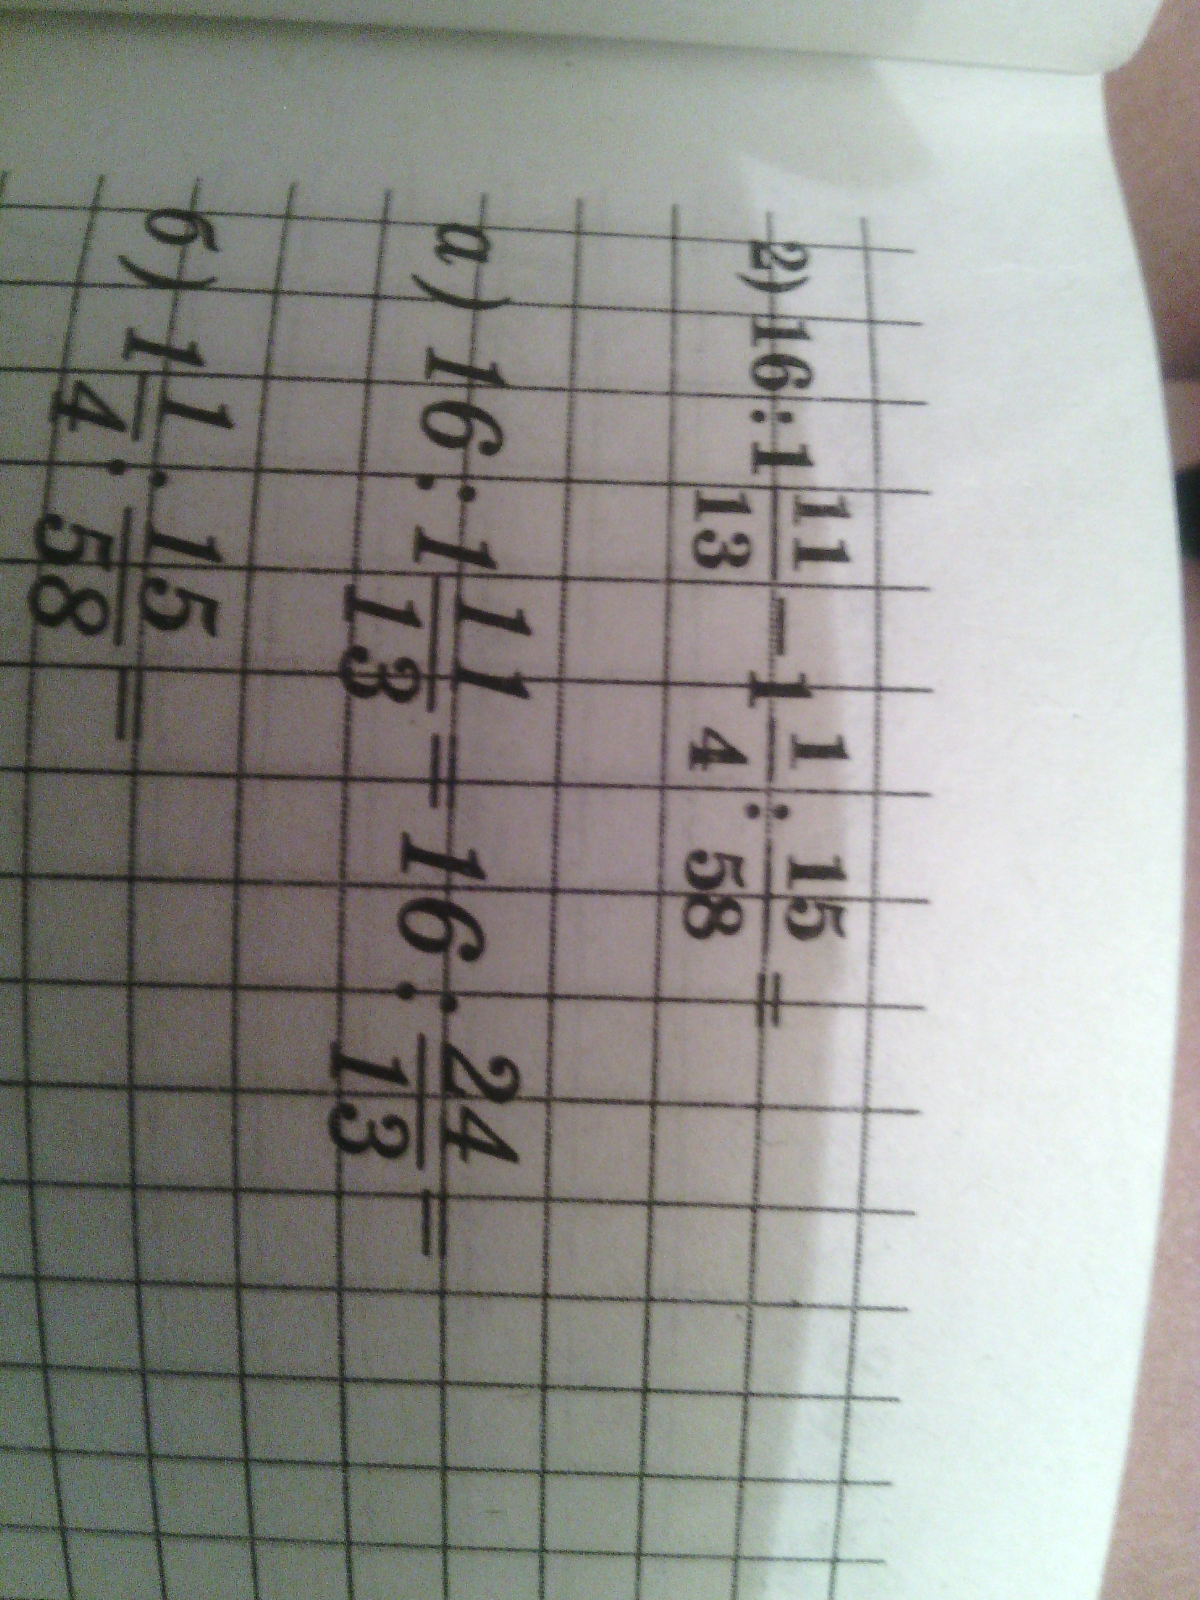 2) 16 : 1 11/13 − 1 1/4 : 15/58 =
а) 16 : 1 11/13 = 16 : 24/13 =
б) 1 1/4 : 15/58 =